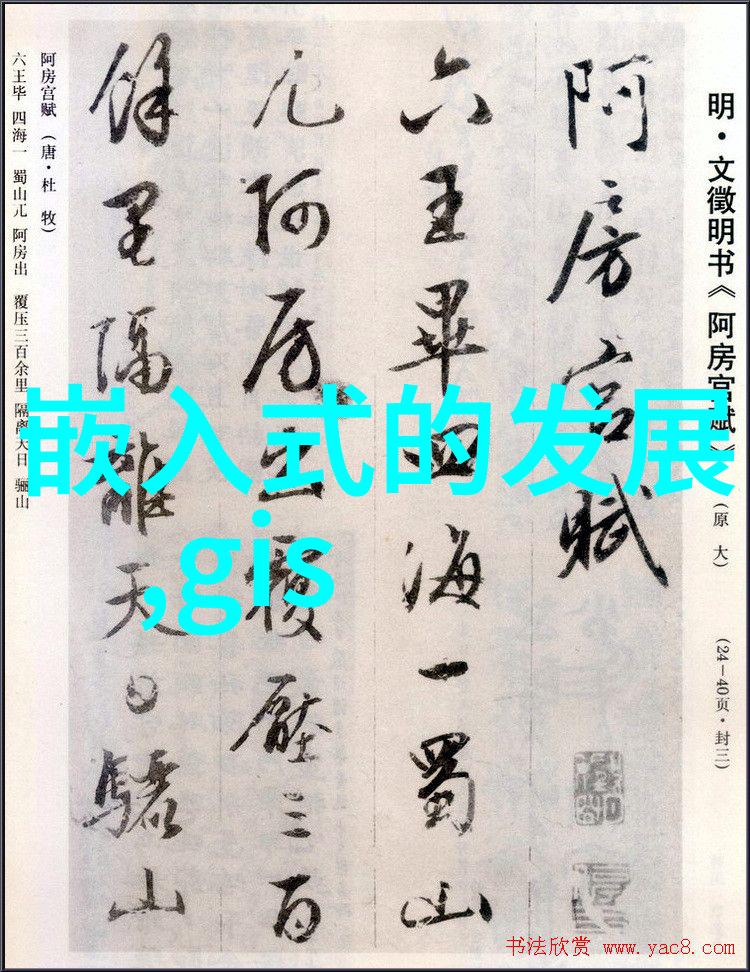 明·文徵明书《阿房宫赋》(原 大) (24—40页·封三)
阿房宫賦
六王畢四海一蜀山
兀阿房出覆壓三百
餘里隔離天日驪山
阿房宫赋(唐·杜 牧)
六王毕 四海一 蜀山兀 阿房出 覆压三百余里 隔离天日 骊山
嵌入式的发展
,gis
书法欣赏 www.yac8.com